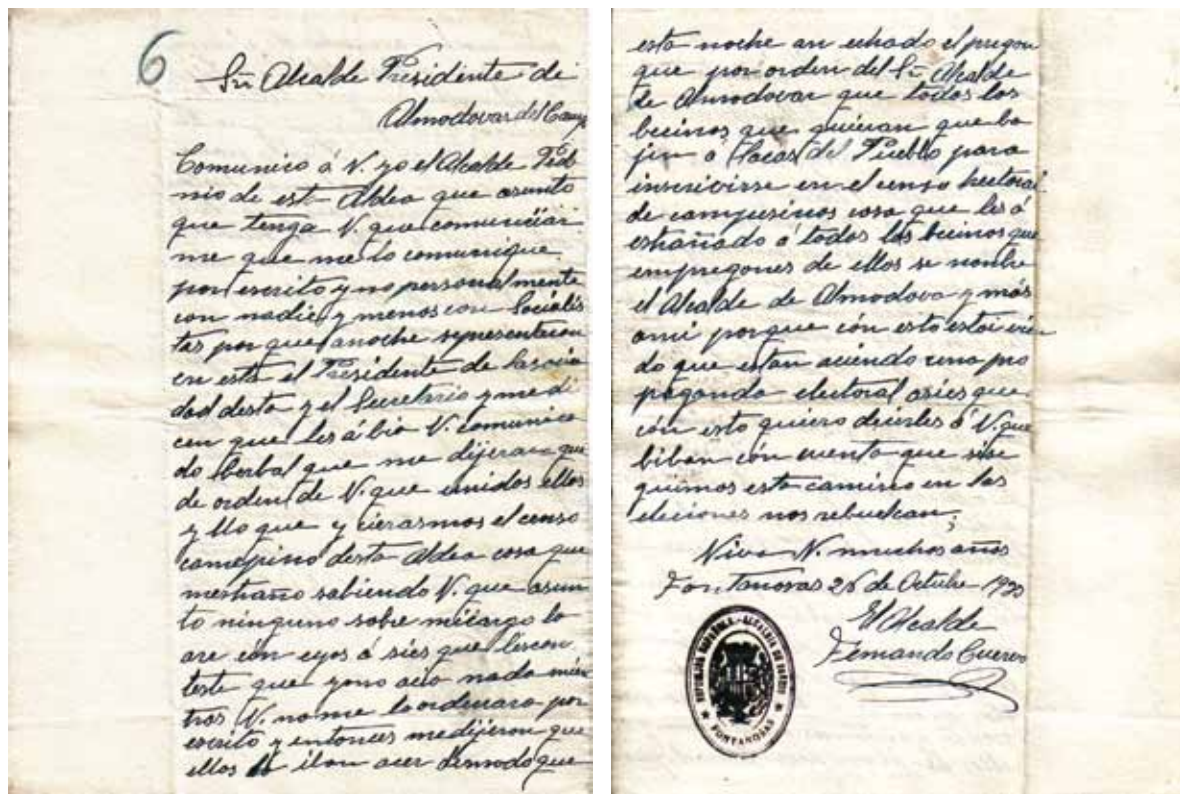 6
Sr Alcalde Presidente de
Almodovar del Camp
Comunico á V. yo el Alcalde Pedá
nio de est Aldea que asunto
que tenga V. que comunicar
me que me lo comunique
por escrito y no personalmente
con nadie y menos con Socialis
tas por que anoche representaron
en esta el Presidente de
dad desta y el Secretario y me di
cen que les ábia V. comunica
do berbal que me dijeran que
de orden de V. que unidos ellos
y llo que y cierasmos el censo
campesino desta Aldea cosa que
mestraño sabiendo V. que asun
to ninguno sobre mi cargo lo
are con eyos á sies que les con
teste que yo no acio nada mien
tras V. no me lo ordenara por
escrito y entonces me dijeron que
ellos lo iban acer demodo que
esta noche an echado el pregon
que por orden del Sr Alcalde
de Almodovar que todos los
becinos que quieran que ba
jen á Casas del Pueblo para
inscrivirse en el censo hectoral
de campesinos cosa que les á
estrañado á todos los becinos que
em pregones de ellos se nonbre
el Alcalde de Almodova y más
ami porque con esto estoi vien
do que estan aciendo una pro
paganda electoral asies que
con esto quiero decirles á V. que
biban con cuenta que si se
guimos este camino en las
eleciones nos rebuelcan;
Viva V. muchos años
Fontanosas 26 de Octubre 1933
El Alcalde
Fernando Cuervo
REPUBLICA ESPAÑOLA - ALCALDIA DE BARRIO
★ FONTANOSAS ★